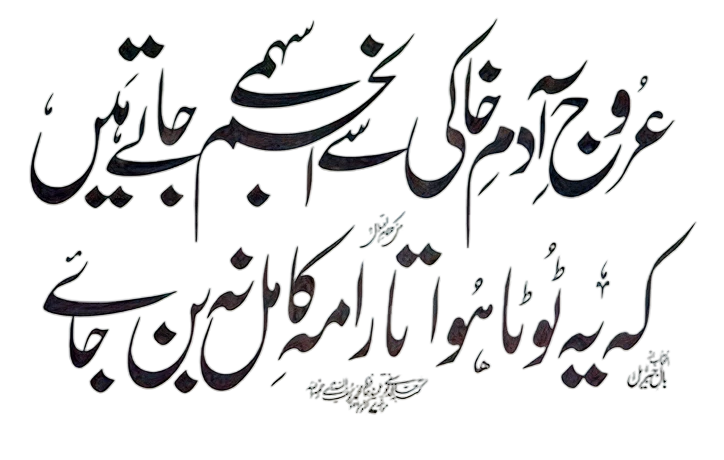 عُروجِ آدمِ خاکی سے انجم سہمے جاتے ہَیں
کہ یہ ٹُوٹا ہُوا تارا مہِ کامِل نہ بن جائے
بالِ جبریل